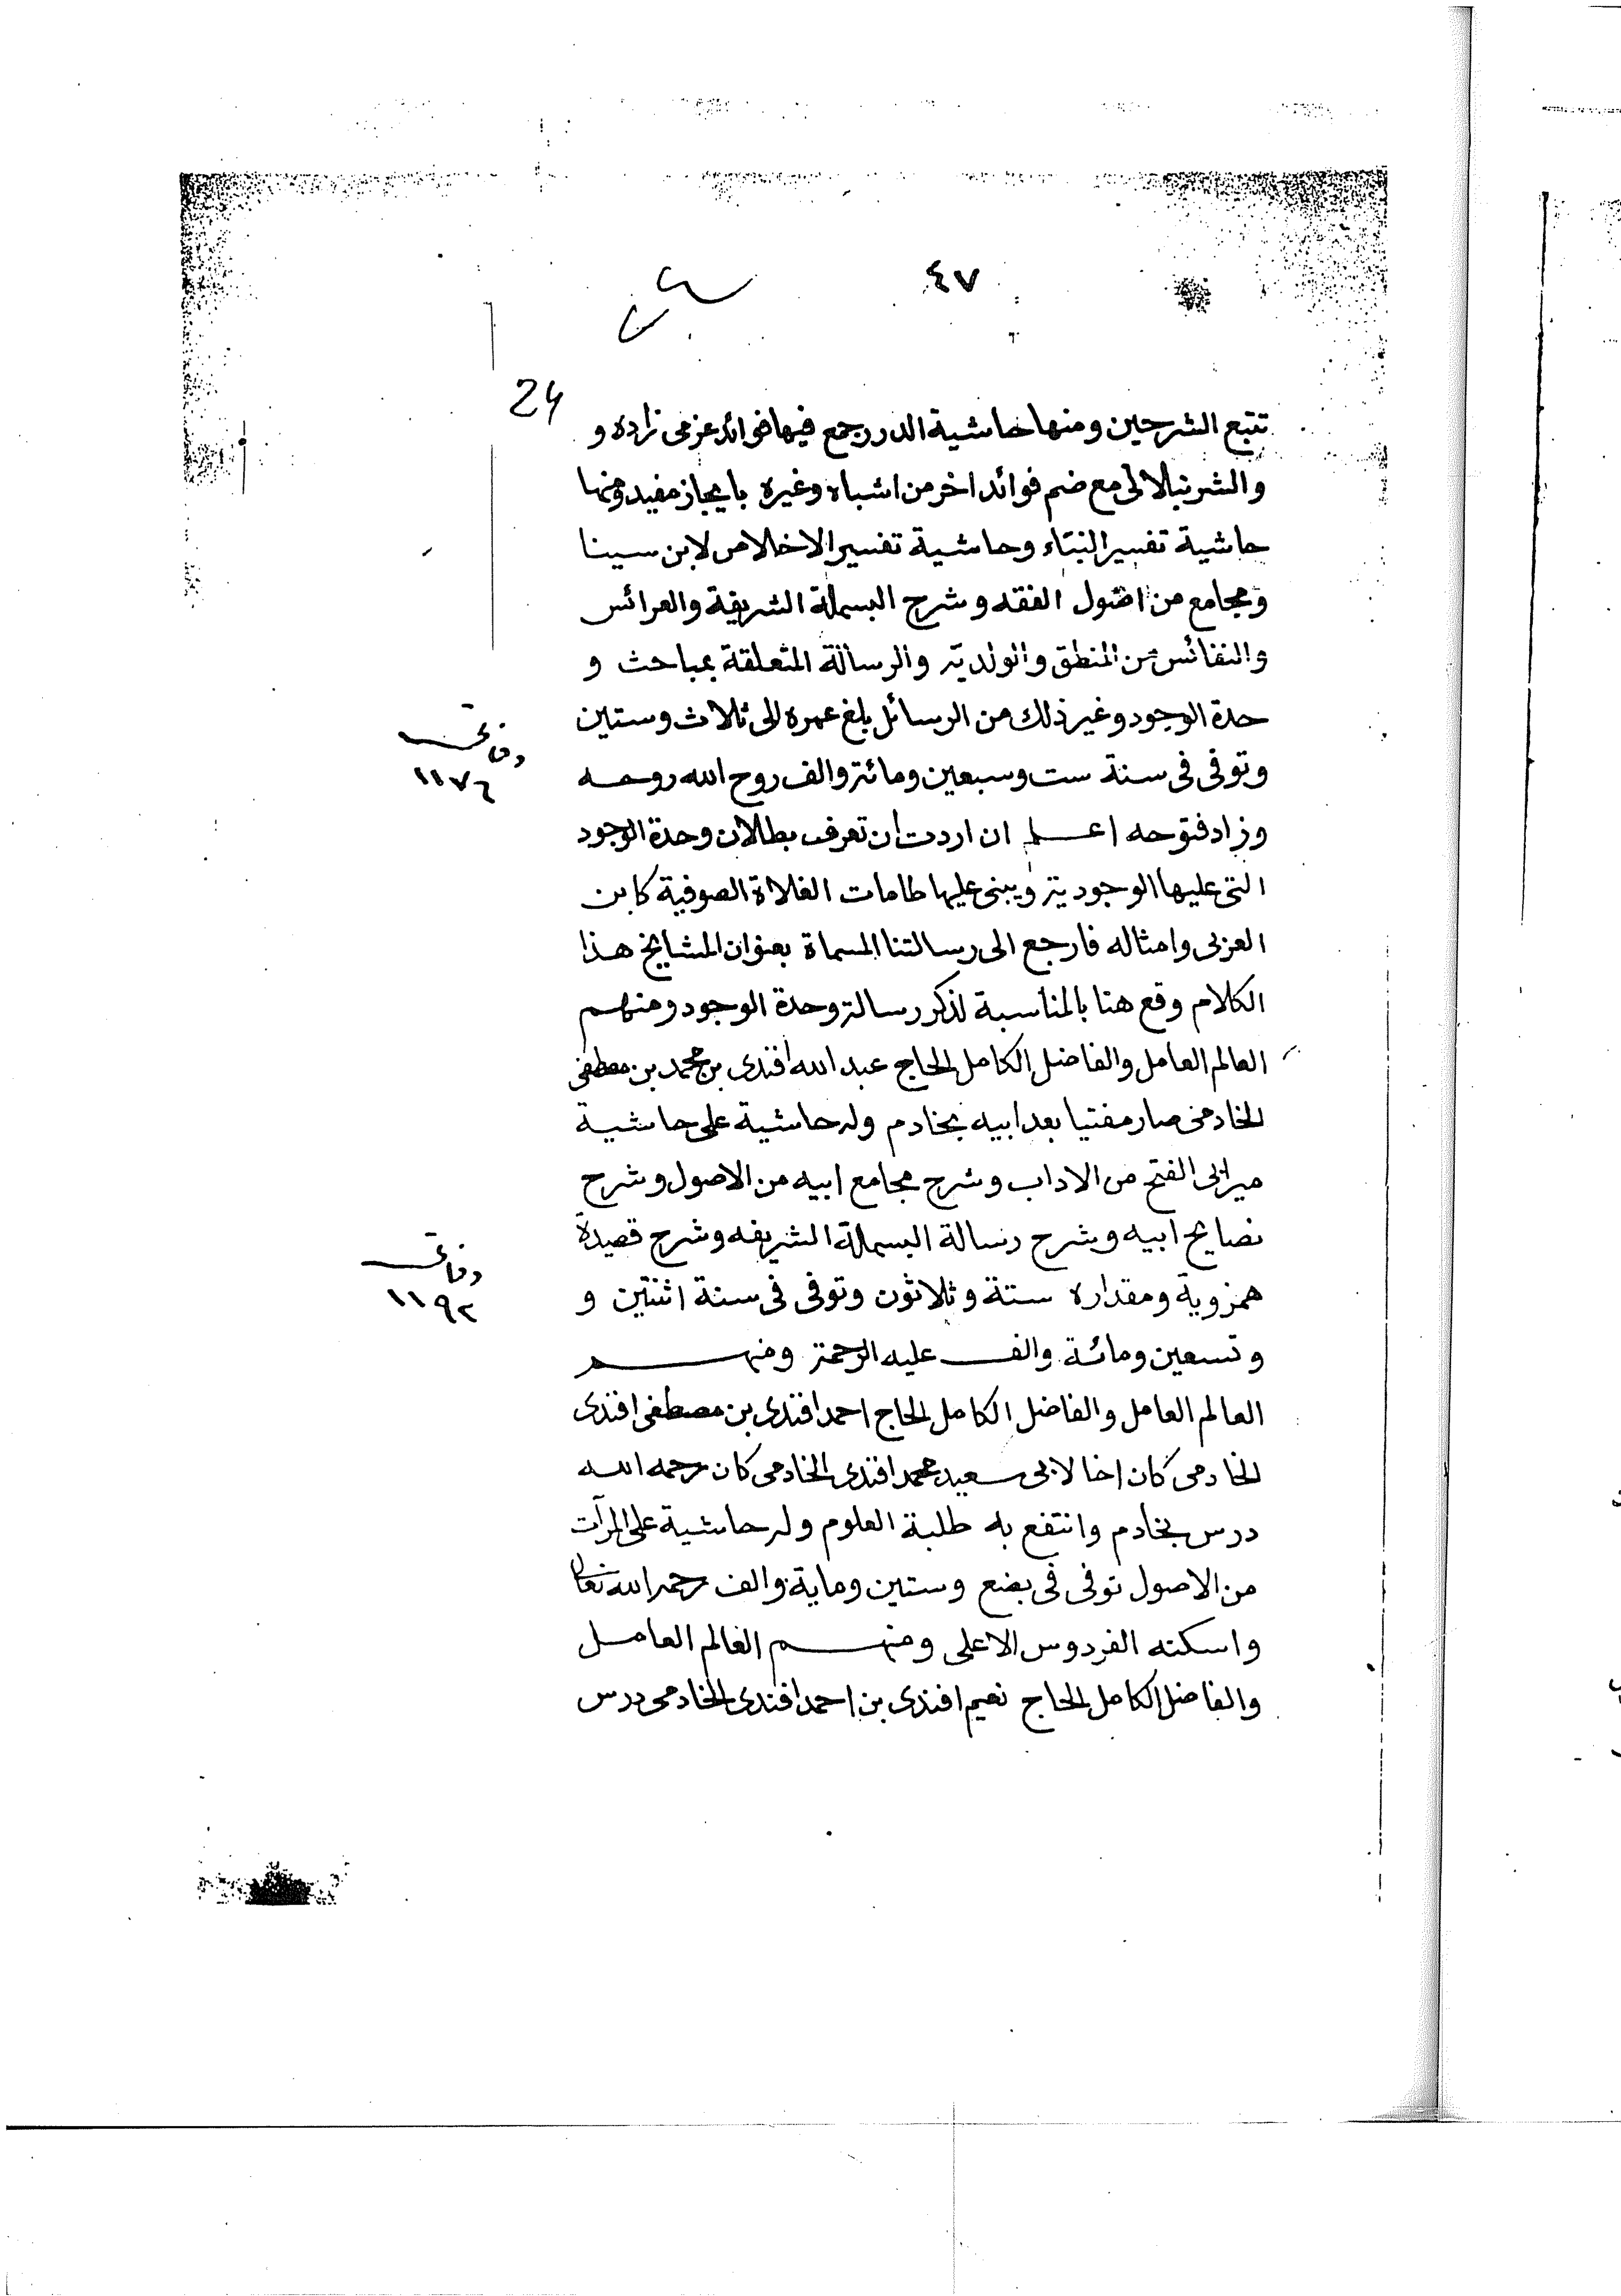 ٤٧
24
تتبع الشرحين ومنها حاشية الدرر جمع فيها فوائد عزمى زاده و
والشرنبلالى مع ضم فوائد اخر من اشباه وغيره بايجاز مفيد ومنها
حاشية تفسير النبّاء وحاشية تفسير الاخلاص لابن سينا
ومجامع من اصول الفقه وشرح البسملة الشريفة والعرائس
والنفائس من المنطق والولدية والرسالة المتعلقة بمباحث و
حدة الوجود وغير ذلك من الرسائل بلغ عمره الى ثلاث وستين
وتوفى فى سنة ست وسبعين ومائة والف روح الله روحه
وفاتى
١١٧٦
وزاد فتوحه اعلم ان اردت ان تعرف بطلان وحدة الوجود
التى عليها الوجودية ويبنى عليها طامات الغلاة الصوفية كابن
العربى وامثاله فارجع الى رسالتنا المسماة بعنوان المشايخ هذا
الكلام وقع هنا بالمناسبة لذكر رسالة وحدة الوجود ومنهم
العالم العامل والفاضل الكامل الحاج عبد الله افندى بن محمد بن مصطفى
الخادمى صار مفتيا بعد ابيه بخادم وله حاشية على حاشية
مير ابى الفتح من الاداب وشرح مجامع ابيه من الاصول وشرح
نصايح ابيه وشرح رسالة البسملة الشريفه وشرح قصيدة
همزوية ومقداره ستة وثلاثون وتوفى فى سنة اثنتين و
وفاتى
١١٩٢
وتسعين ومائة والف عليه الرحمة ومنهم
العالم العامل والفاضل الكامل الحاج احمد افندى بن مصطفى افندى
الخادمى كان اخا لابى سعيد محمد افندى الخادمى كان رحمه الله
درس بخادم وانتفع به طلبة العلوم وله حاشية على المرآت
من الاصول توفى فى بضع وستين وماية والف رحمه الله تعالى
واسكنه الفردوس الاعلى ومنهم العالم العامل
والفاضل الكامل الحاج نعيم افندى بن احمد افندى الخادمى درس